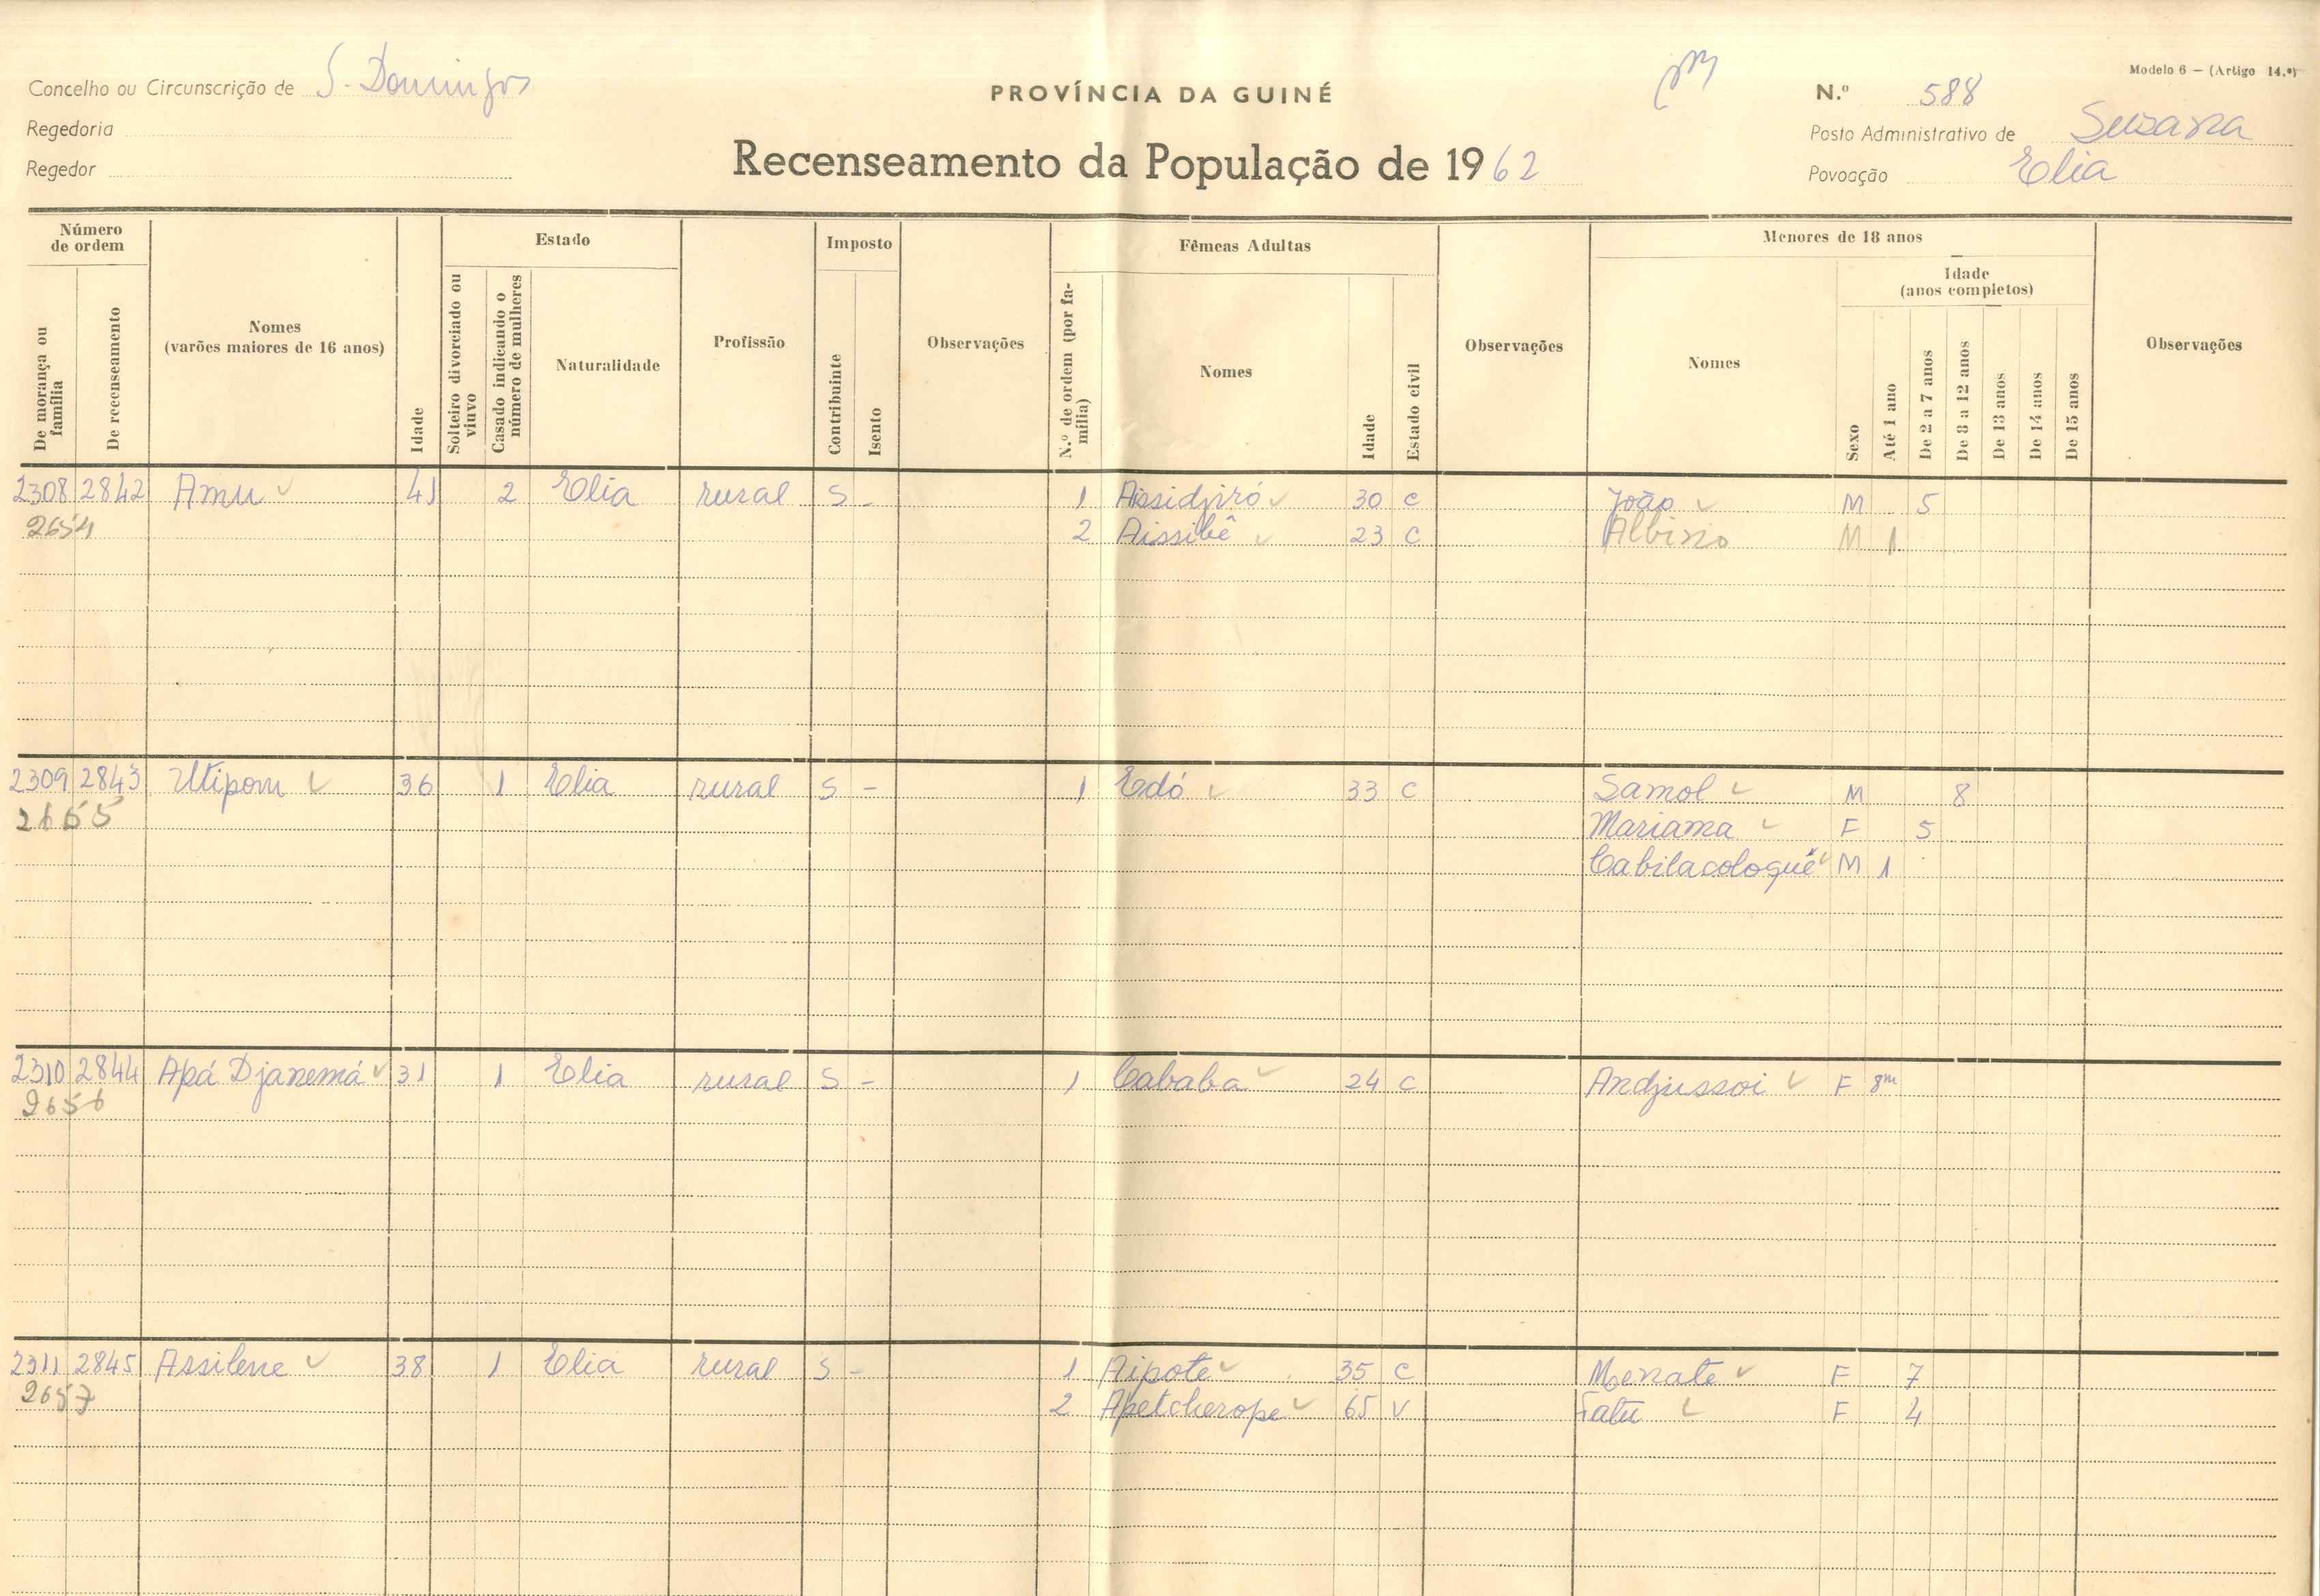 Modelo 6 — (Artigo 14.º)
Concelho ou Circunscrição de S. Domingos
PROVÍNCIA DA GUINÉ
N.º 588
Regedoria
Posto Administrativo de Suzana
Regedor
Recenseamento da População de 1962
Povoação Elia
Número de ordem
Estado
Imposto
Fêmeas Adultas
Menores de 18 anos
De morança ou família
De recenseamento
Nomes
(varões maiores de 16 anos)
Idade
Solteiro divorciado ou viuvo
Casado indicando o número de mulheres
Naturalidade
Profissão
Contribuinte
Isento
Observações
N.º de ordem (por família)
Nomes
Idade
Estado civil
Observações
Nomes
Sexo
Idade
(anos completos)
Até 1 ano
De 2 a 7 anos
De 8 a 12 anos
De 13 anos
De 14 anos
De 15 anos
Observações
2308 2842 Amu 41 2 Elia rural S - 1 Assidjiró 30 C João M 5
2654 2 Aissibê 23 C Albino M 1
2309 2843 Utipom 36 1 Elia rural S - 1 Edó 33 C Samol M 8
2655 Mariama F 5
Cabilacologuê M 1
2310 2844 Apá Djanemá 31 1 Elia rural S - 1 Cababa 24 C Andjussoi F 8m
2656
2311 2845 Assilene 38 1 Elia rural S - 1 Aipote 35 C Menate F 7
2657 2 Apetcherope 65 V Fatu F 4